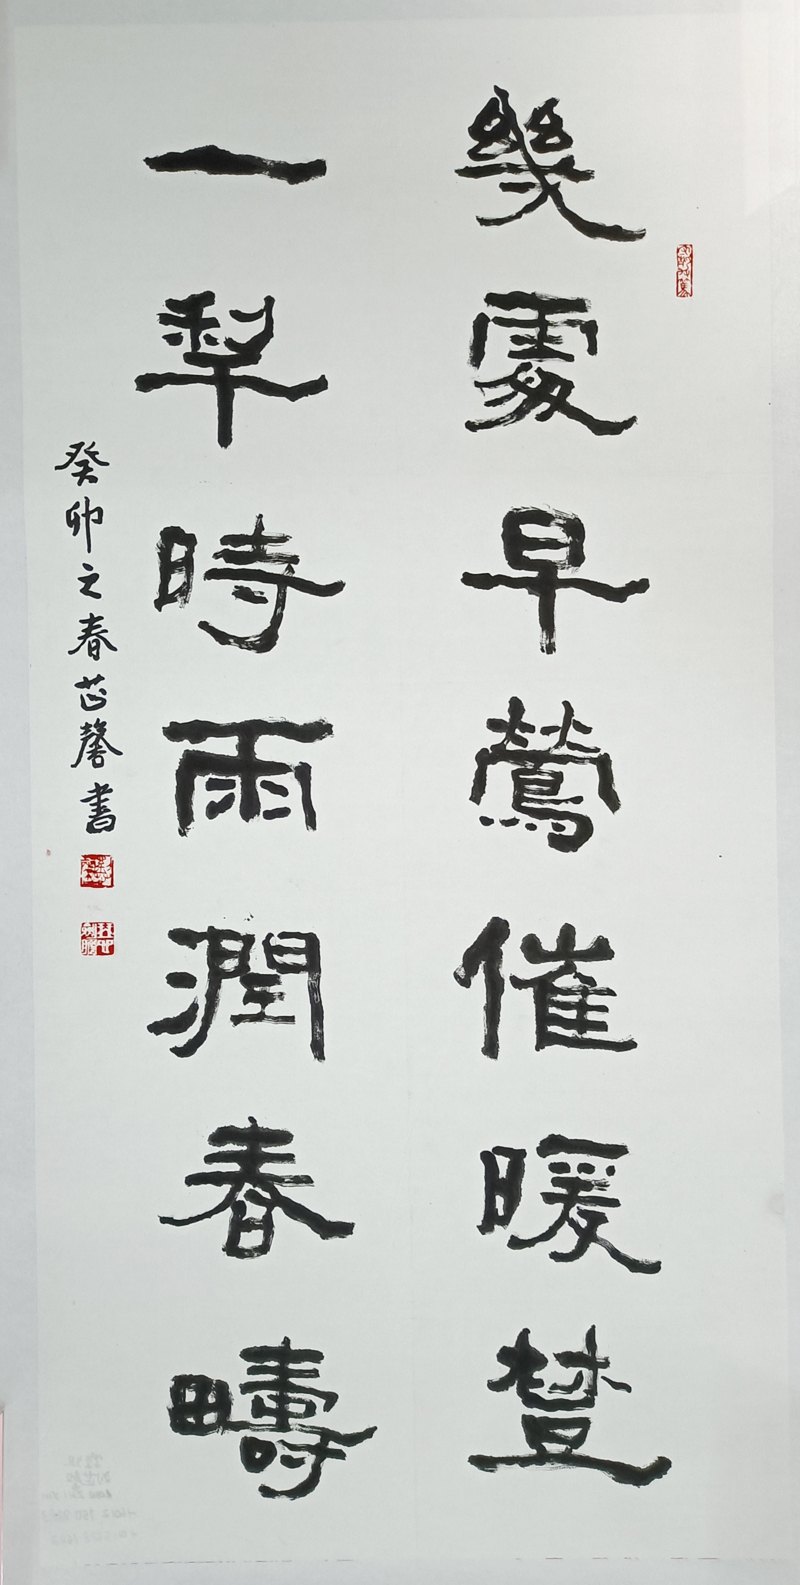 幾處早鶯催暖樹
一犁時雨潤春疇
癸卯之春芷馨書